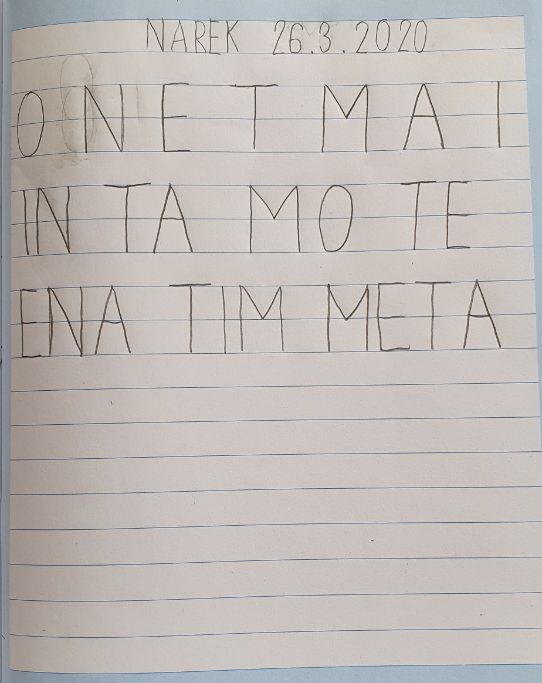 NAREK 26.3.2020
O N E T M A I
IN TA MO TE
ENA TIM META